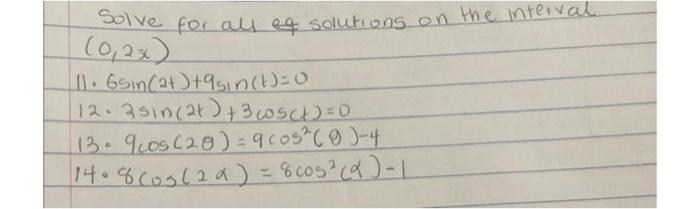 Solve for all eq solutions on the interval
(0,2x)
11. 6sin(2t)+9sin(t)=0
12. 3sin(2t)+3cos(t)=0
13. 9cos(2θ)=9cos²(θ)-4
14. 8cos(2α)=8cos²(α)-1